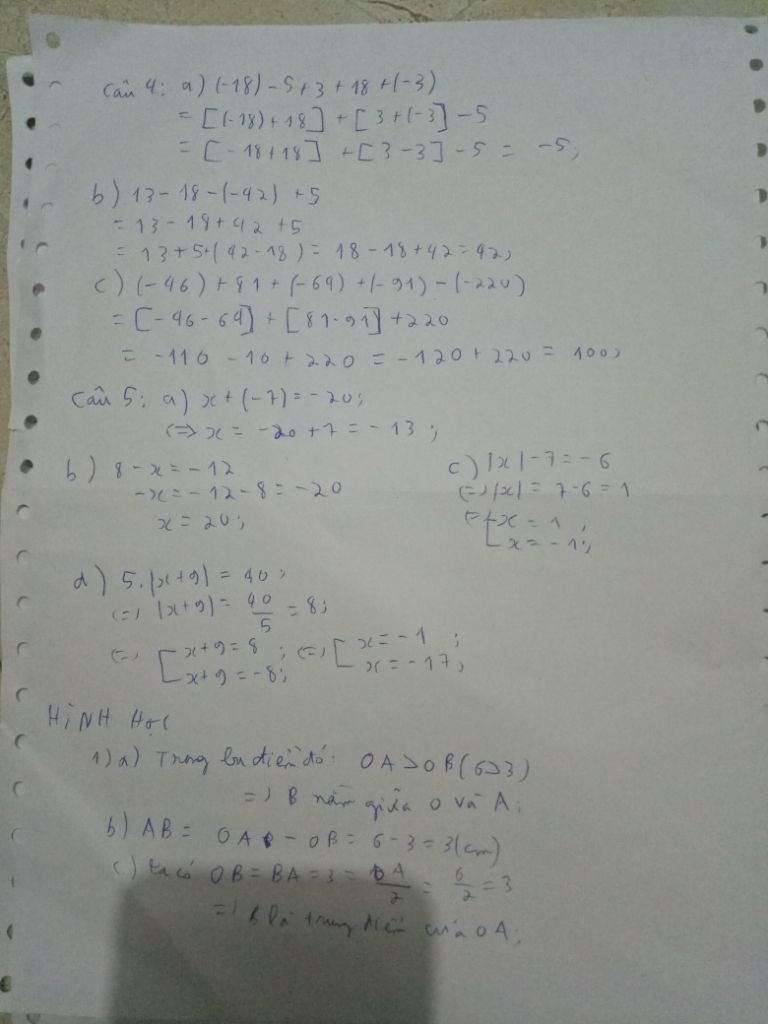 Câu 4: a) (-18) - 5 + 3 + 18 + (-3)
= [(-18) + 18] + [3 + (-3] - 5
= [-18 + 18] + [3 - 3] - 5 = -5;
b) 13 - 18 - (-42) + 5
= 13 - 18 + 42 + 5
= 13 + 5 + (42 - 18) = 18 - 18 + 42 = 42;
c) (-46) + 81 + (-64) + (-91) - (-220)
= [-46 - 64] + [81 - 91] + 220
= -110 - 10 + 220 = -120 + 220 = 100;
Câu 5: a) x + (-7) = -20;
<=> x = -20 + 7 = -13;
b) 8 - x = -12
-x = -12 - 8 = -20
x = 20;
c) |x| - 7 = -6
<=> |x| = 7 - 6 = 1
<=> [x = 1;
x = -1;
d) 5.|x + 9| = 40;
<=> |x + 9| = 40/5 = 8;
<=> [x + 9 = 8; <=> [x = -1;
x + 9 = -8; x = -17;
HÌNH HỌC
1) a) Trong ba điểm đó: OA > OB (6 > 3)
=> B nằm giữa O và A;
b) AB = OA - OB = 6 - 3 = 3 (cm)
c) ta có OB = BA = 3 = OA/2 = 6/2 = 3
=> B là trung điểm của OA;